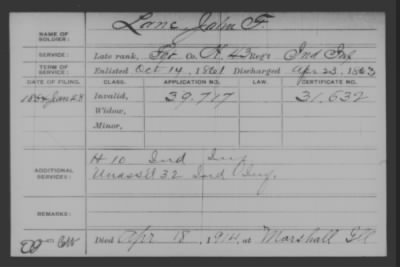 NAME OF SOLDIER: Lane, John F.
SERVICE: Late rank, Co. K, 43 Reg't Ind Inf
TERM OF SERVICE: Enlisted Oct 14, 1861 Discharged Apr 23, 1863
DATE OF FILING. CLASS. APPLICATION NO. LAW. CERTIFICATE NO.
Jan 28 Invalid, 39,717 31,632
Widow,
Minor,
ADDITIONAL SERVICES: H 10 Ind Inf
Unass'd 32 Ind Inf.
REMARKS:
Died Apr 18, 1914, at Marshall Ill